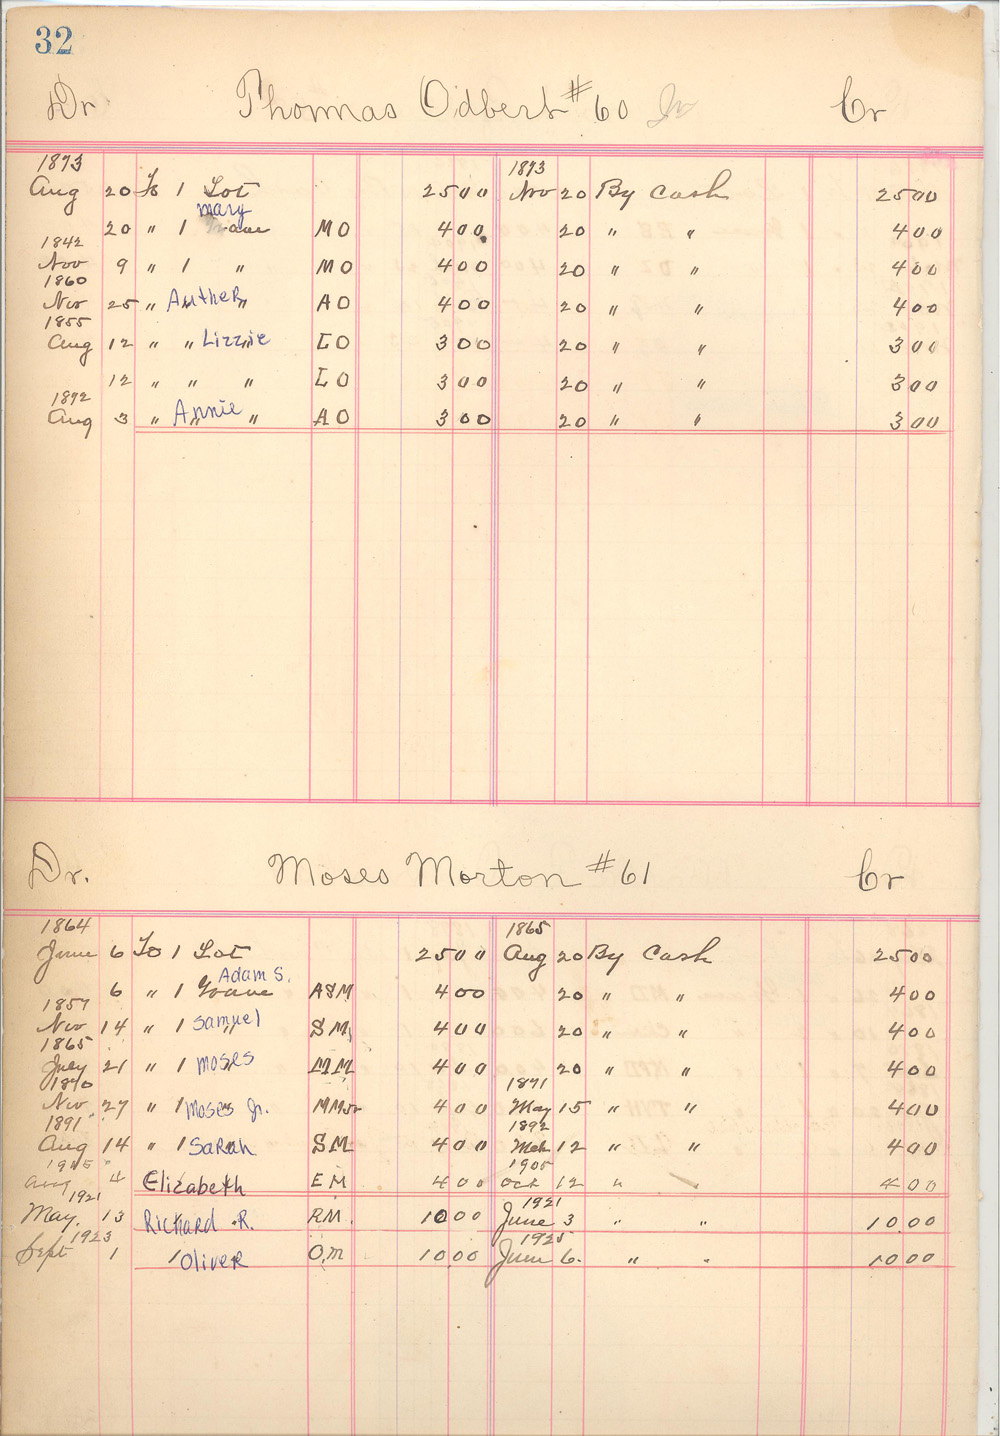 32
Dr Thomas Odbert #60 Jr Cr
1873 1873
Aug 20 To 1 Lot 25 00 Nov 20 By Cash 25 00
Mary
20 " 1 Grave MO 4 00 20 " " 4 00
1842
Nov 9 " 1 " MO 4 00 20 " " 4 00
1860
Nov 25 " Anther " AO 4 00 20 " " 4 00
1855
Aug 12 " " Lizzie LO 3 00 20 " " 3 00
12 " " " LO 3 00 20 " " 3 00
1872
Aug 3 " Annie " AO 3 00 20 " " 3 00
Dr. Moses Morton #61 Cr
1864 1865
June 6 To 1 Lot 25 00 Aug 20 By Cash 25 00
Adam S.
6 " 1 Grave ASM 4 00 20 " " 4 00
1857
Nov 14 " 1 Samuel SM 4 00 20 " " 4 00
1865
July 21 " 1 Moses MM 4 00 20 " " 4 00
1870 1871
Nov 27 " 1 Moses Jr. MMJr 4 00 May 15 " " 4 00
1891 1892
Aug 14 " 1 Sarah SM 4 00 Mch 12 " " 4 00
1905 1905
Aug 4 Elizabeth EM 4 00 Oct 12 " 4 00
1921 1921
May. 13 Richard R. RM. 10 00 June 3 " " 10 00
1923 1925
Sept 1 1 Oliver O.M 10 00 June 6. " " 10 00